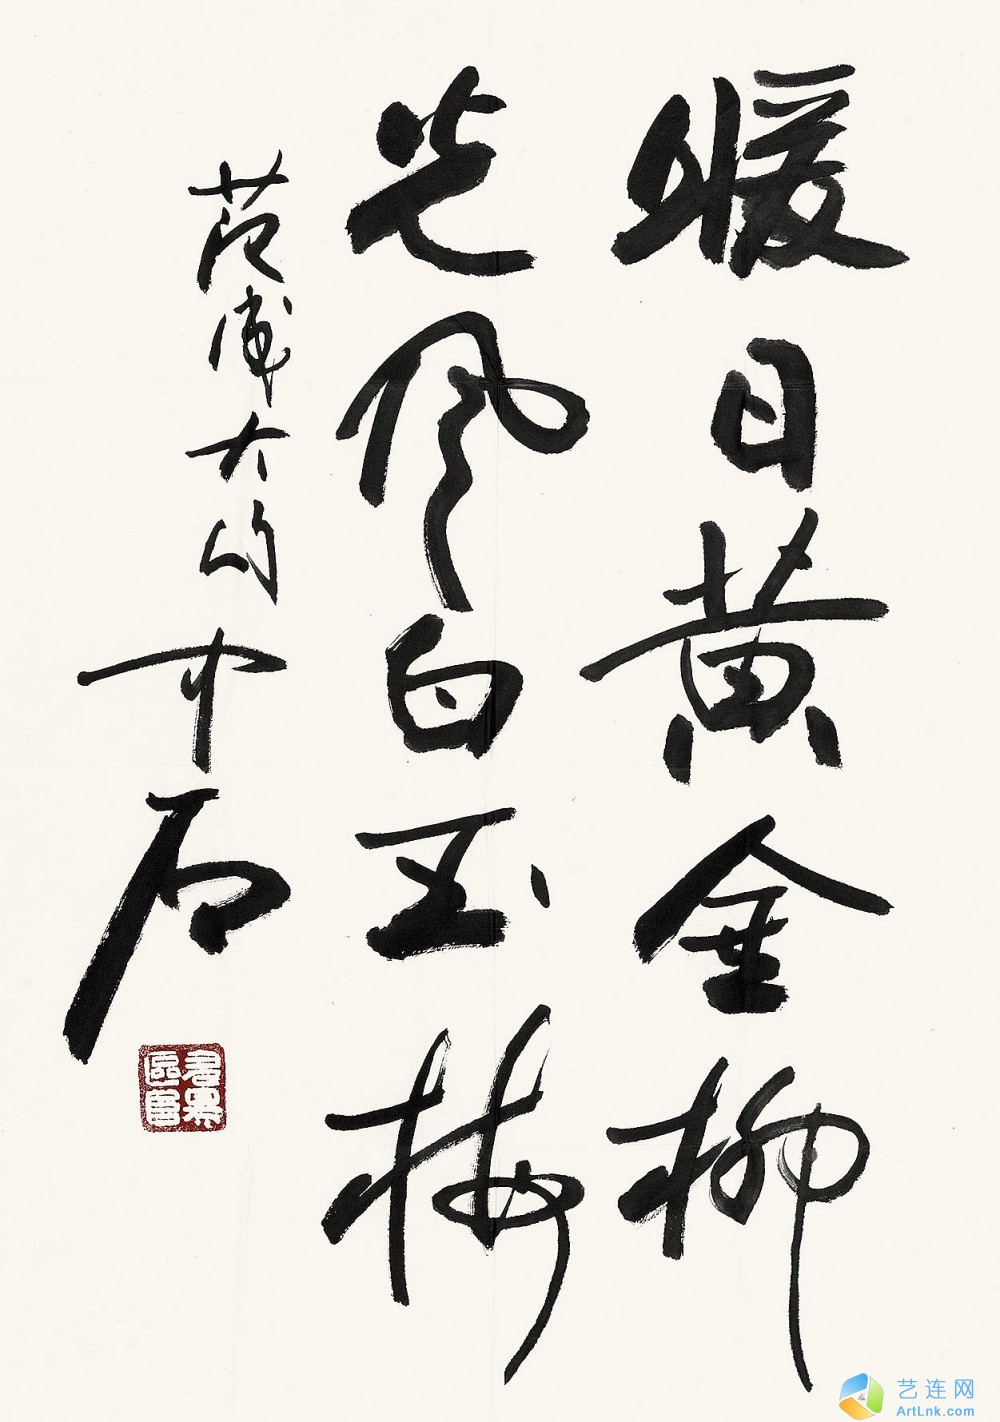 暖日黄金柳
光风白玉梅
范成大句 中石
艺连网
ArtLnk.com